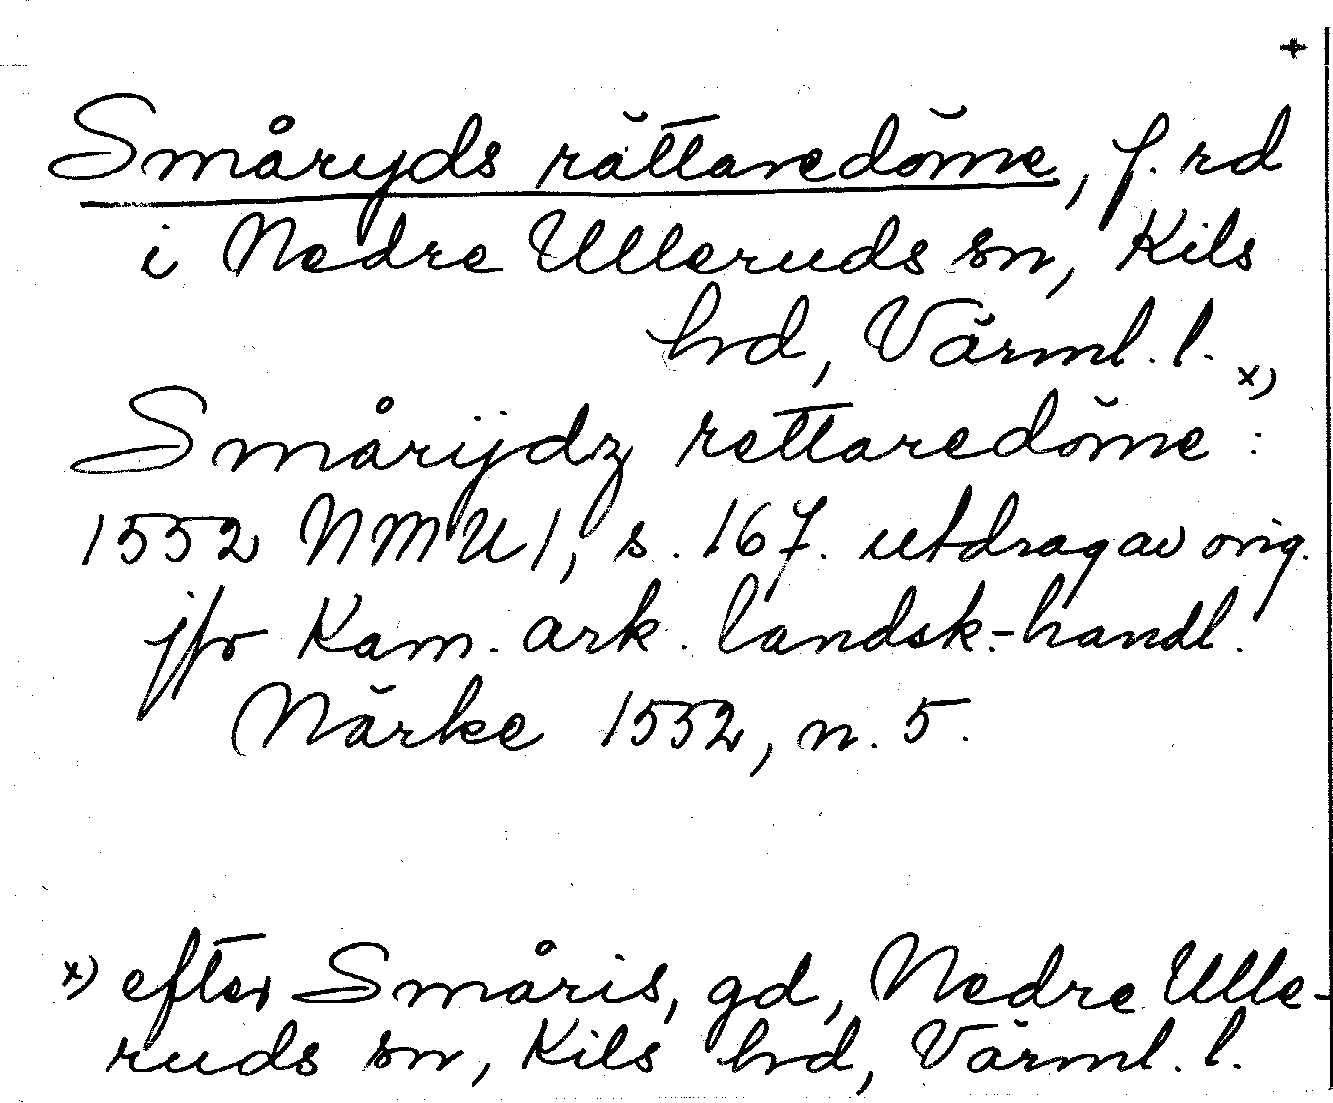 +
Småryds rättaredöme, f. rd
i Nedre Ulleruds sn, Kils
hd, Värml. l. x)
Smårijdz rettaredöme :
1552 NMU 1, s. 167. utdrag av orig.
jfr Kam. ark. landsk.-handl.
Närke 1552, n. 5.
x) efter Småris, gd, Nedre Ulle-
ruds sn, Kils hd, Värml. l.